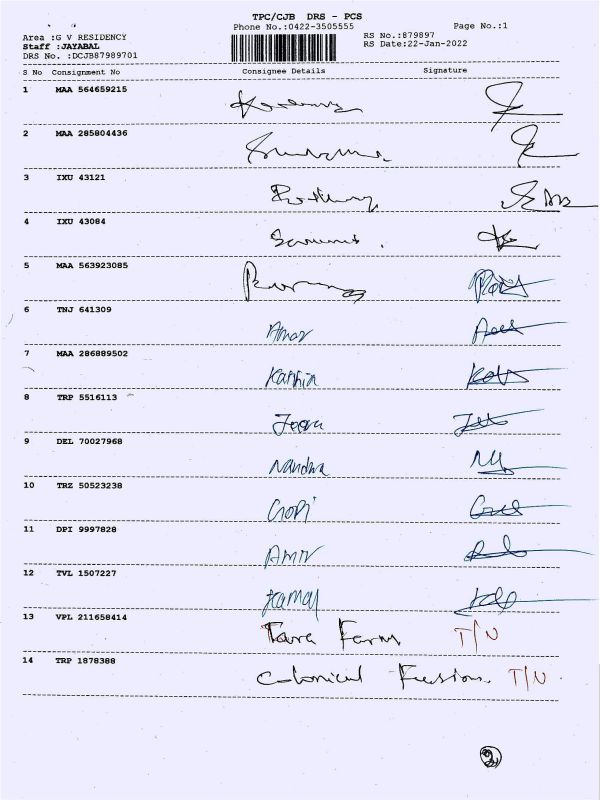 TPC/CJB DRS - PCS
Phone No.:0422-3505555 Page No.:1
Area :G V RESIDENCY RS No.:879897
Staff :JAYABAL RS Date:22-Jan-2022
DRS No. :DCJB87989701
S No Consignment No Consignee Details Signature
1 MAA 564659215
2 MAA 285804436
3 IXU 43121
4 IXU 43084
5 MAA 563923085
6 TNJ 641309 Amar
7 MAA 286889502
8 TRP 5516113
9 DEL 70027968 Nandha
10 TRZ 50523238 Gopi
11 DPI 9997828 Amir
12 TVL 1507227 Kamal
13 VPL 211658414 Tara Farm T/N
14 TRP 1878388 Colonical Fusions T/N